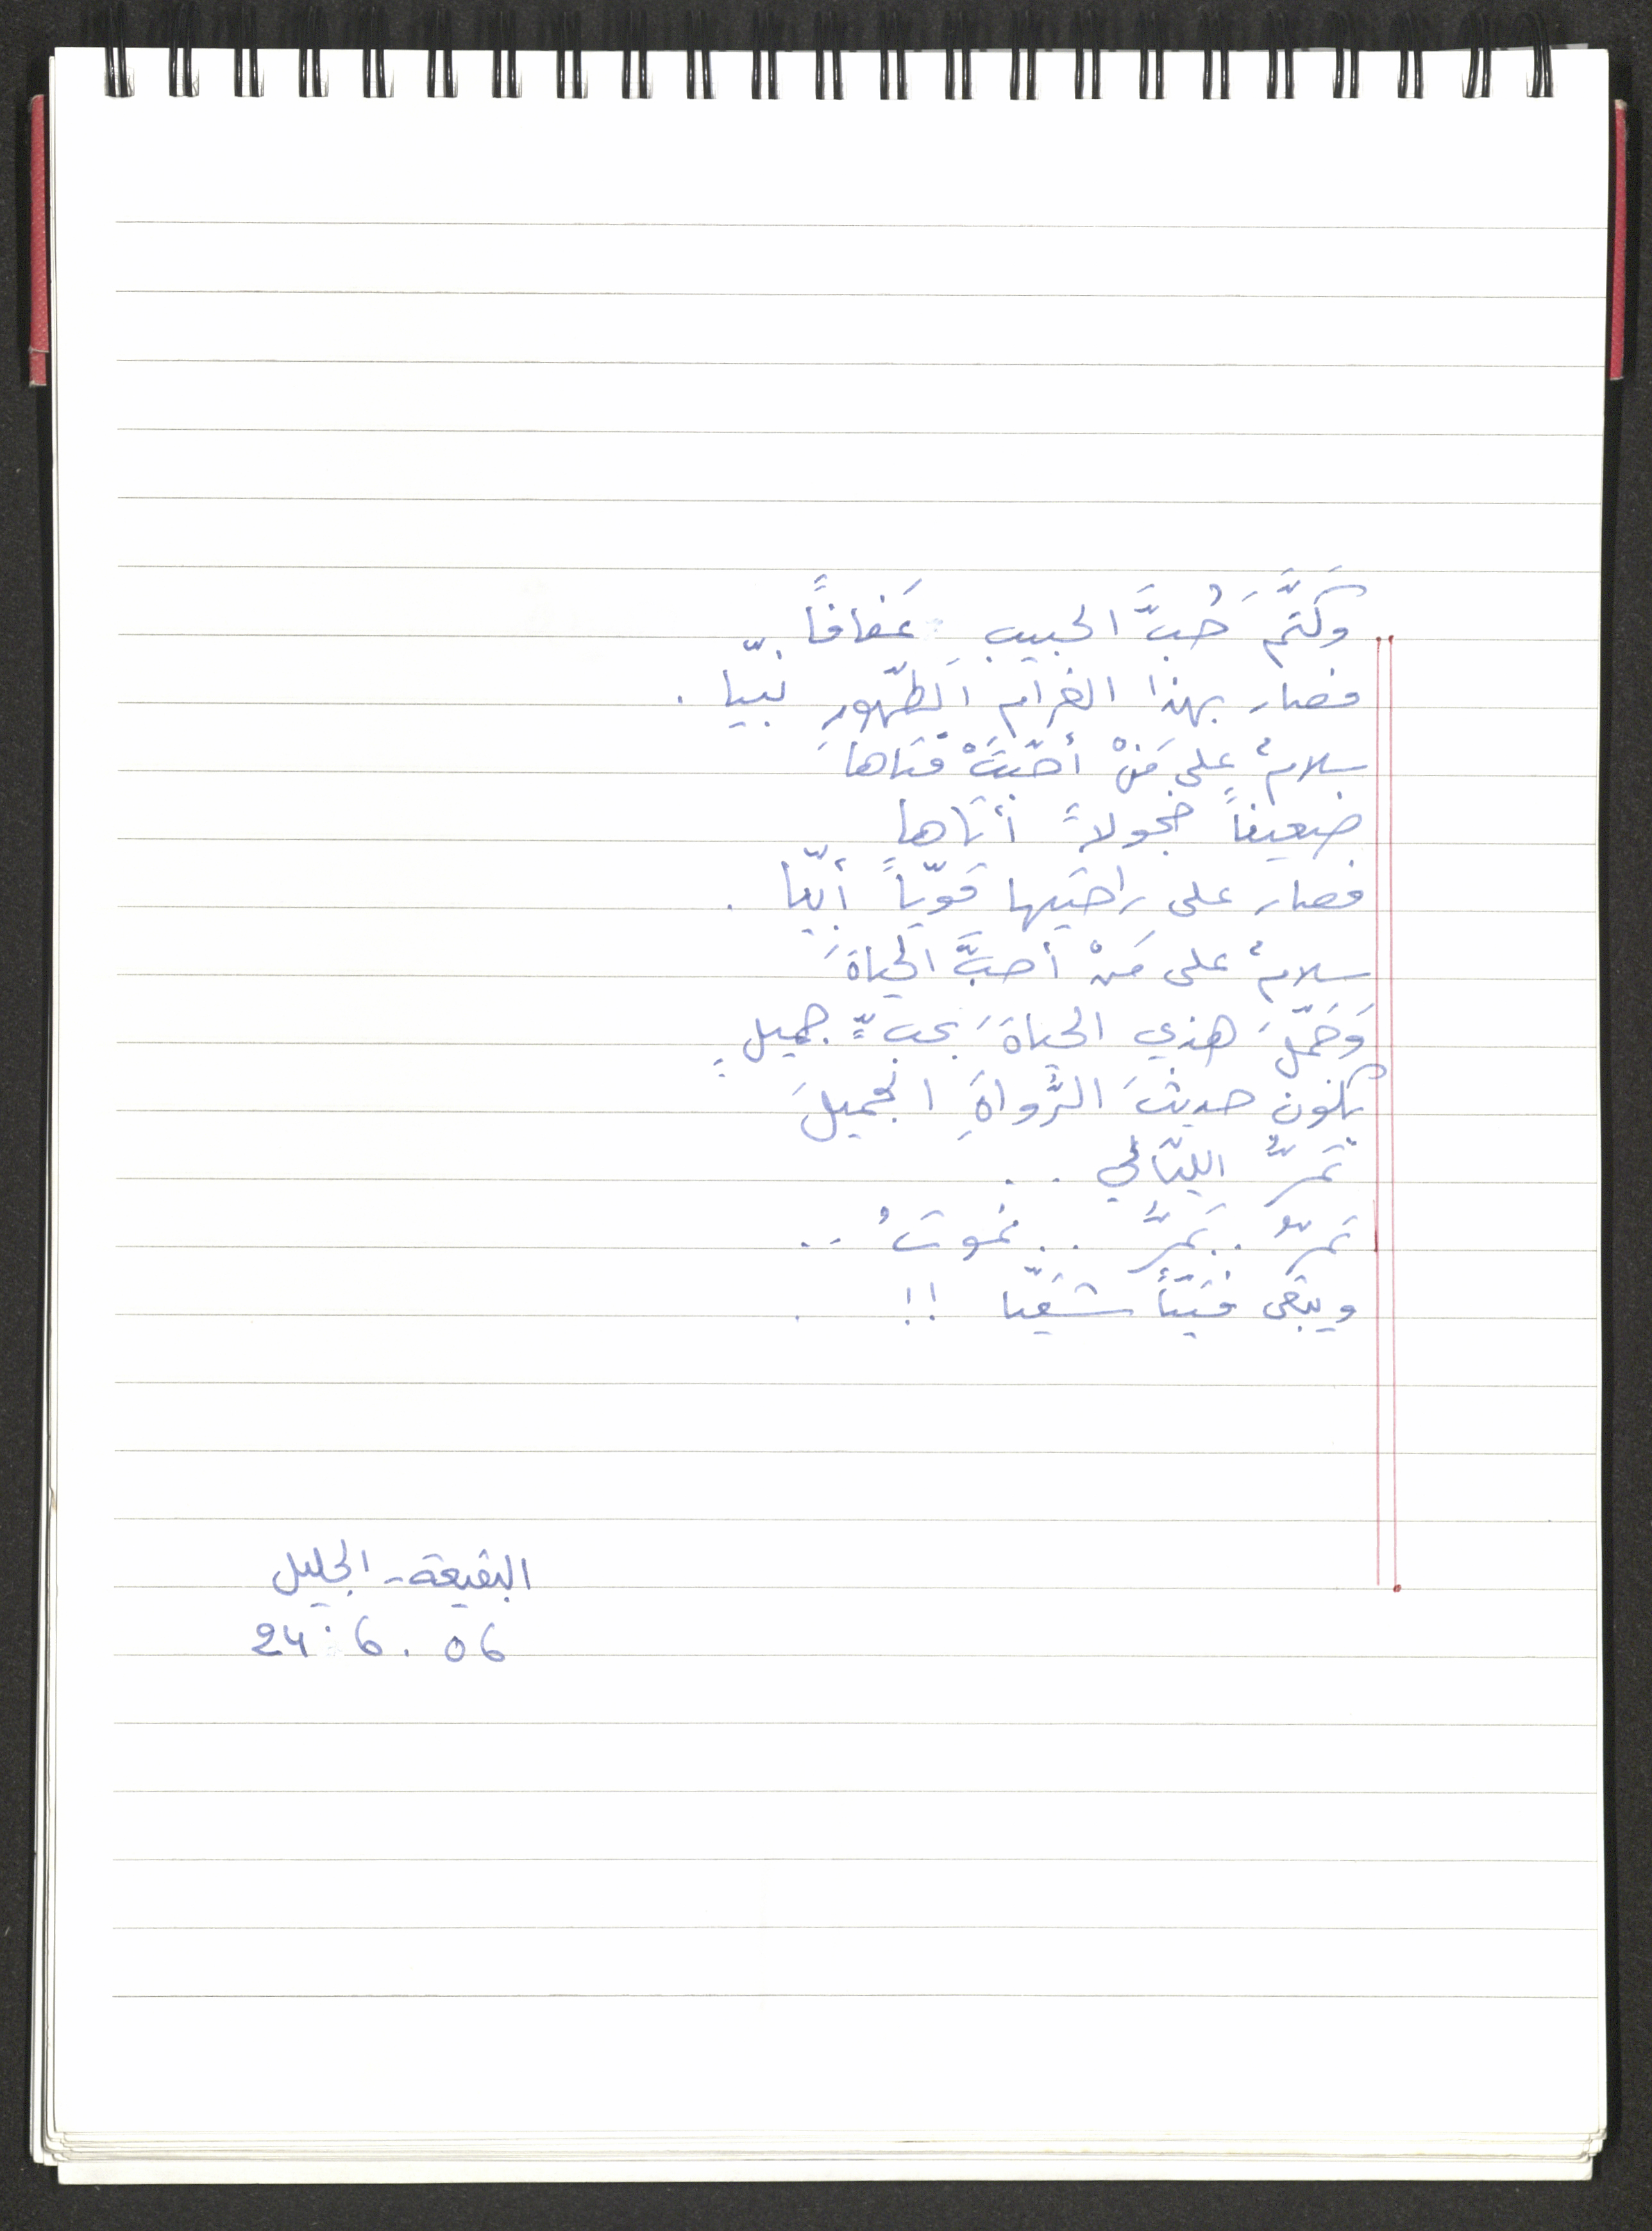 وَكَتَّمَ حُبَّ الحبيبِ عَفافًا
فصار بهذا الغرامِ الطّهورِ نبيّا .
سلامٌ على مَنْ أحبّتْ فتاها
ضعيفاً خجولاً أتاها
فصار على راحتيها قويّاً أبيّا .
سلامٌ على مَنْ أحبَّ الحياةَ
وَحَمّلَ هذي الحياةَ بحبٍّ جميلٍ
يكون حديثَ الرُّواةِ الجميلَ
تَمرُّ الليالي . .
تمرُّ . . تمرُّ . . نموتُ . .
ويبقى فتيّاً شقيّا !!
البقيعة - الجليل
24 . 6 . 06